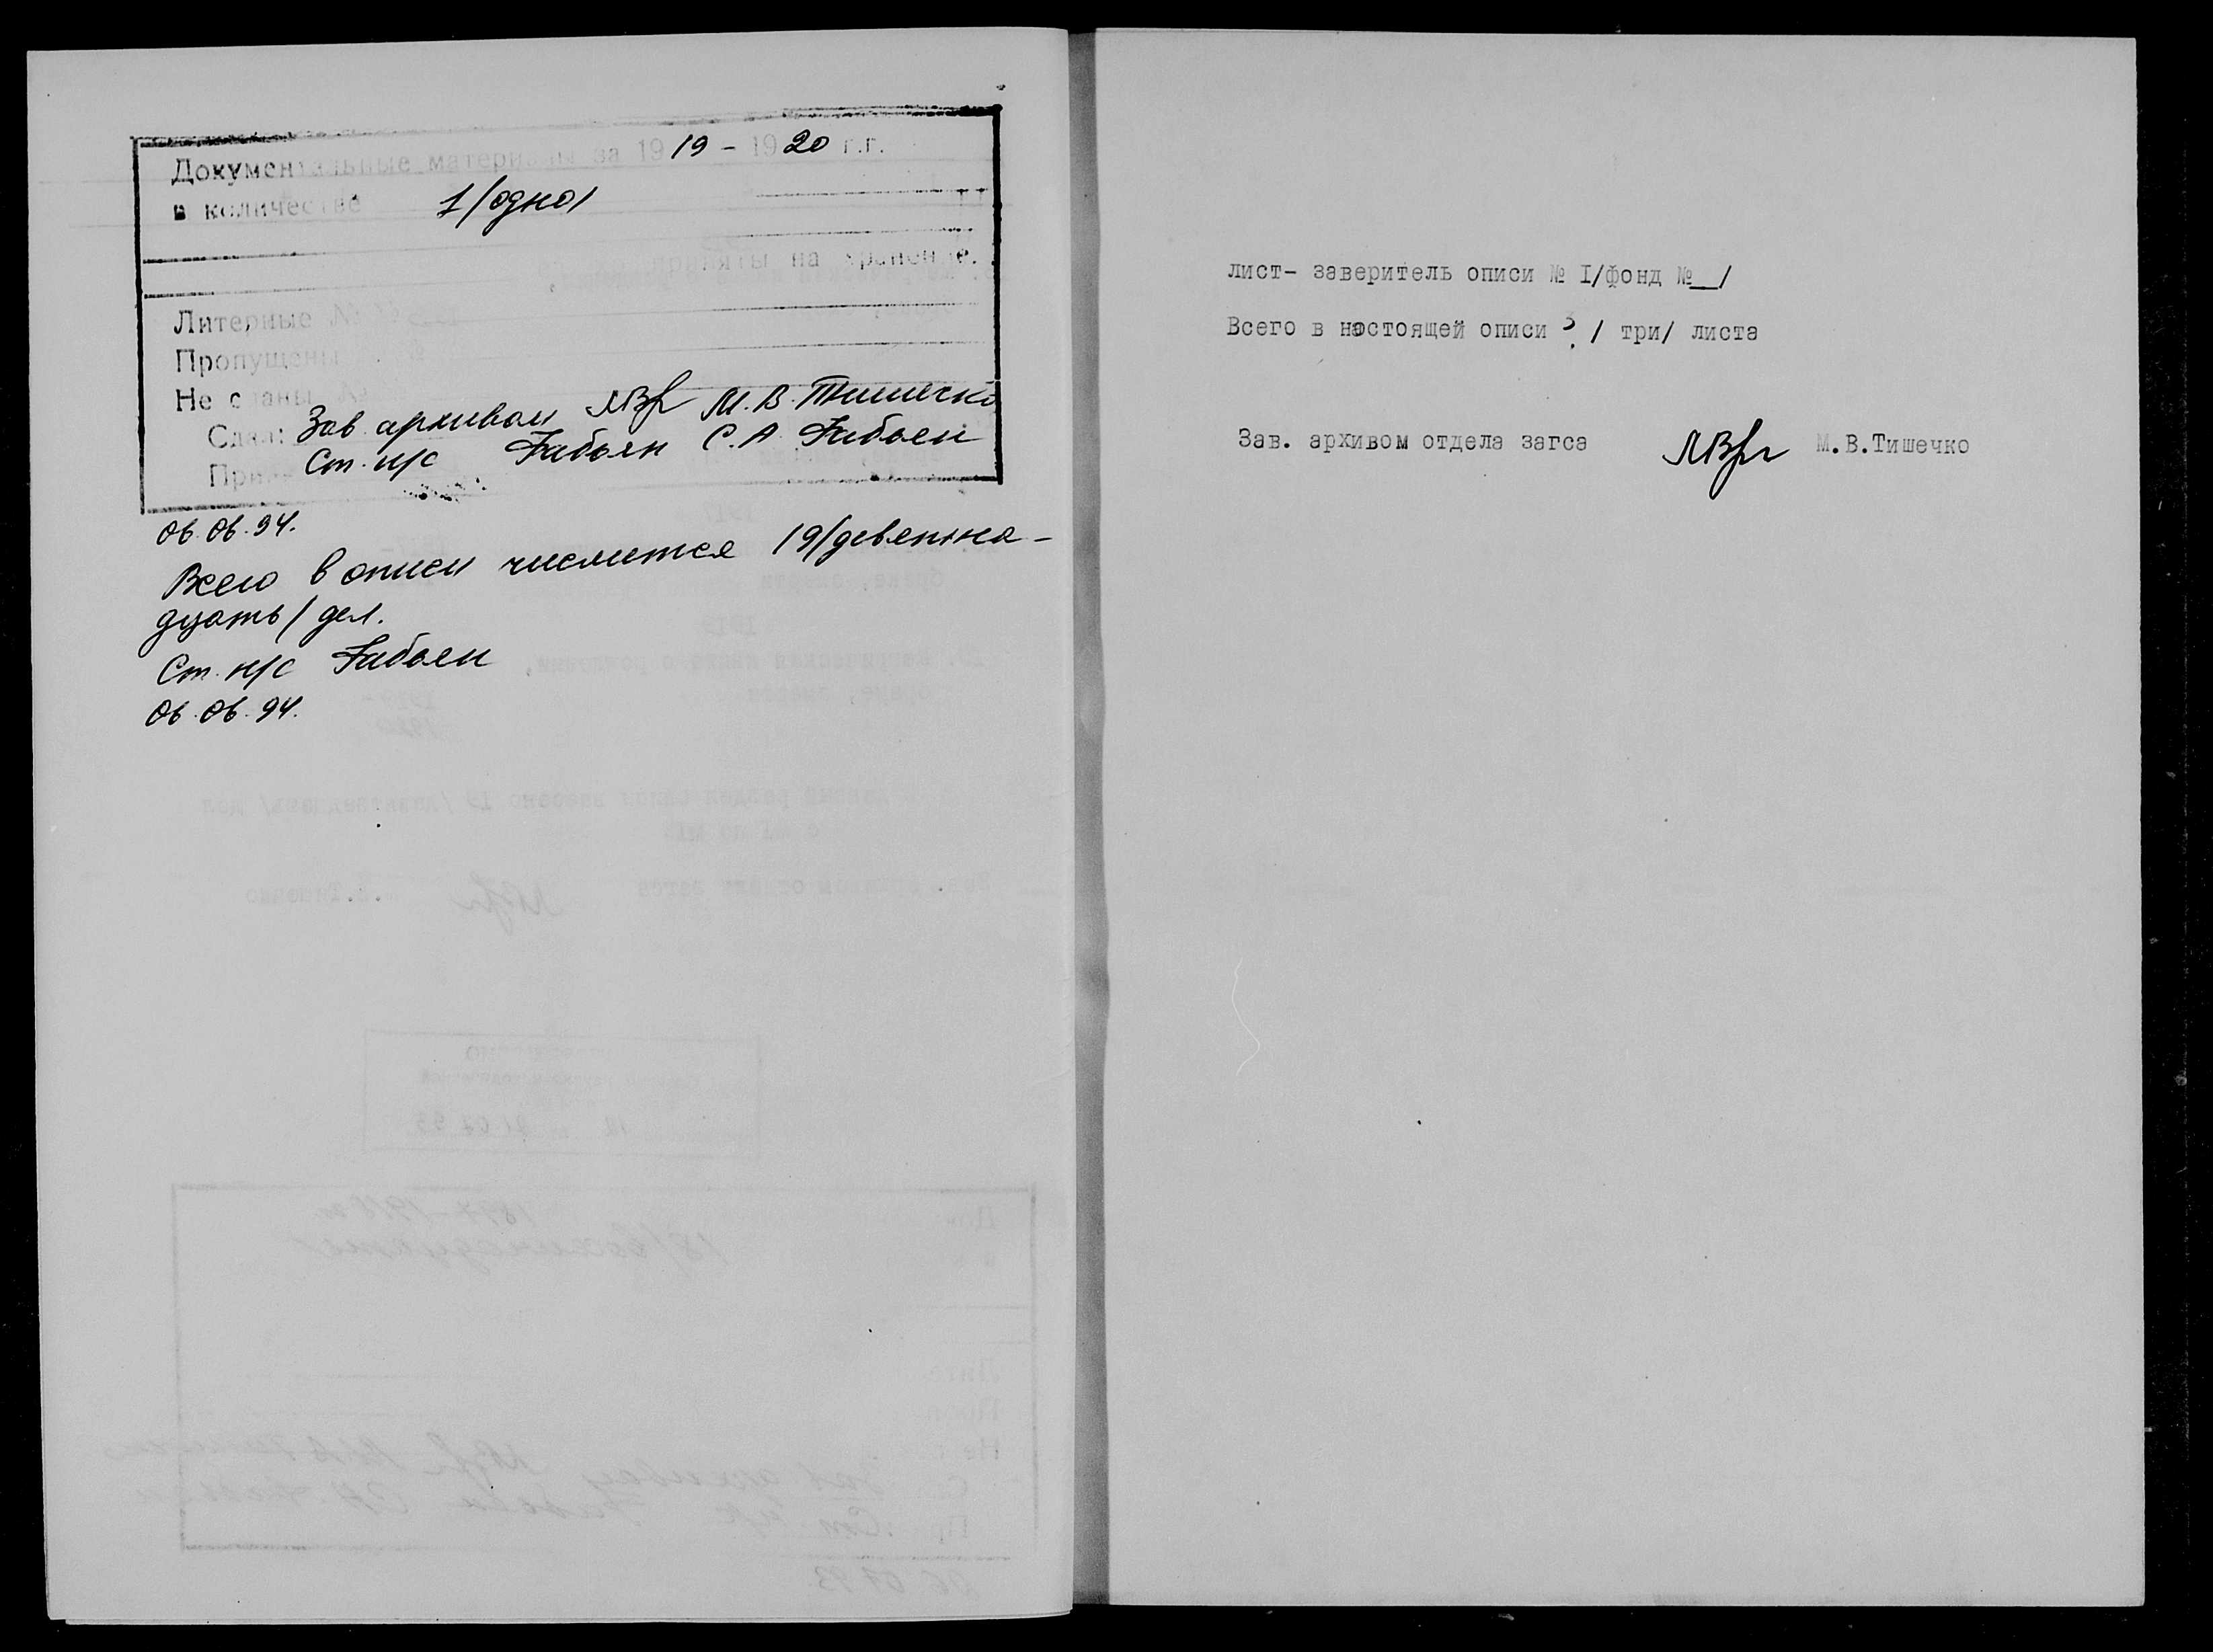 Документальные материалы за 1919 - 1920 г.г.
в количестве 1/одно/
приняты на хранение.
Литерные №
Пропущены
Не сданы №
Сдал: Зав. архивом М. В. Тишечко
Ст. н/с Бабьен С. А. Бабьен
06.06.94.
Всего в описи числится 19/девятна-
дцать/ дел.
Ст. н/с
06.06.94.
лист- заверитель описи № I/фонд №__/
Всего в настоящей описи 3 / три/ листа
Зав. архивом отдела загса М.В.Тишечко